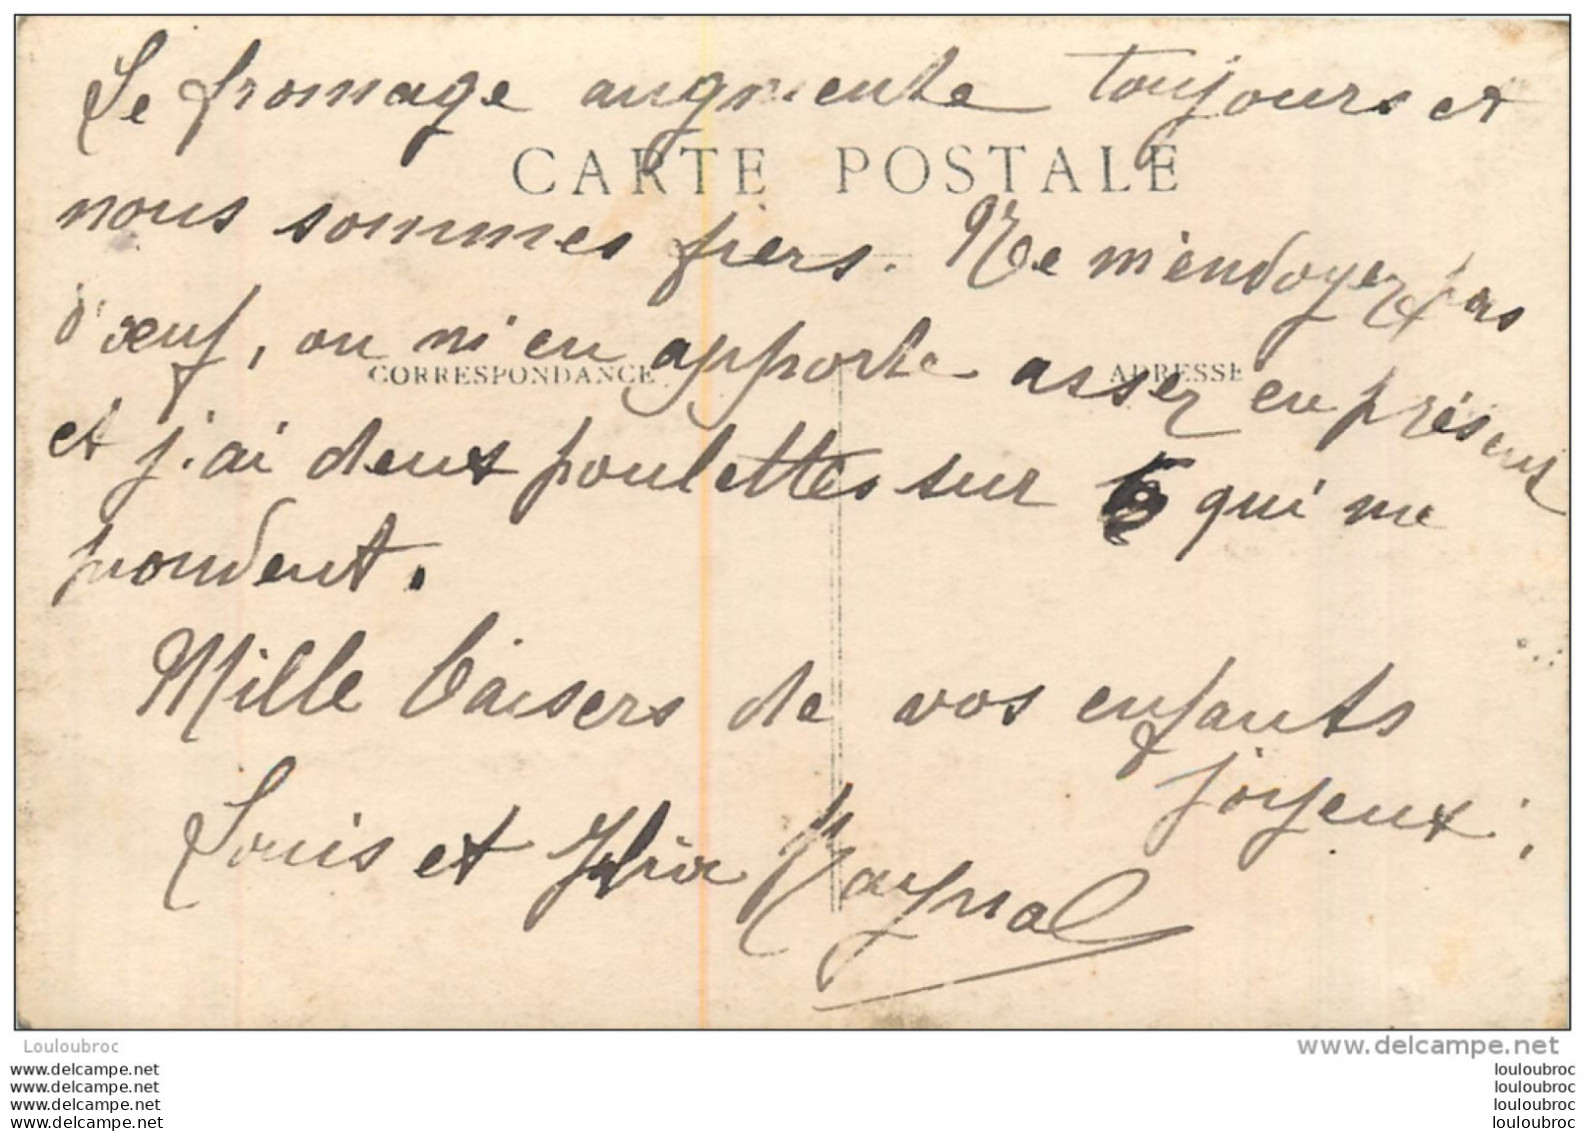 Le fromage augmente toujours et
CARTE POSTALE
nous sommes fiers. Ne m'envoyez pas
d'œuf, on m'en apporte assez en présent
CORRESPONDANCE
ADRESSE
et j'ai deux poulettes sur 6 qui me
pondent.
Mille baisers de vos enfants
joyeux.
Louis et Raynal
Louloubroc
www.delcampe.net
www.delcampe.net
www.delcampe.net
www.delcampe.net
www.delcampe.net
louloubroc
louloubroc
louloubroc
louloubroc